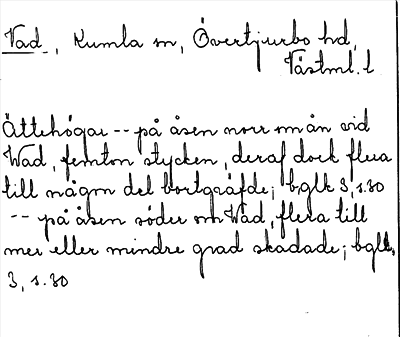 Vad, Kumla sn, Övertjurbo hd,
Västml. l
Ättehögar -- på åsen norr om ån vid
Wad, femton stycken, deraf dock flera
till någon del bortgräfde; bglk 3, s.30
-- på åsen söder om Wad, flera till
mer eller mindre grad skadade; bglk,
3, s.30